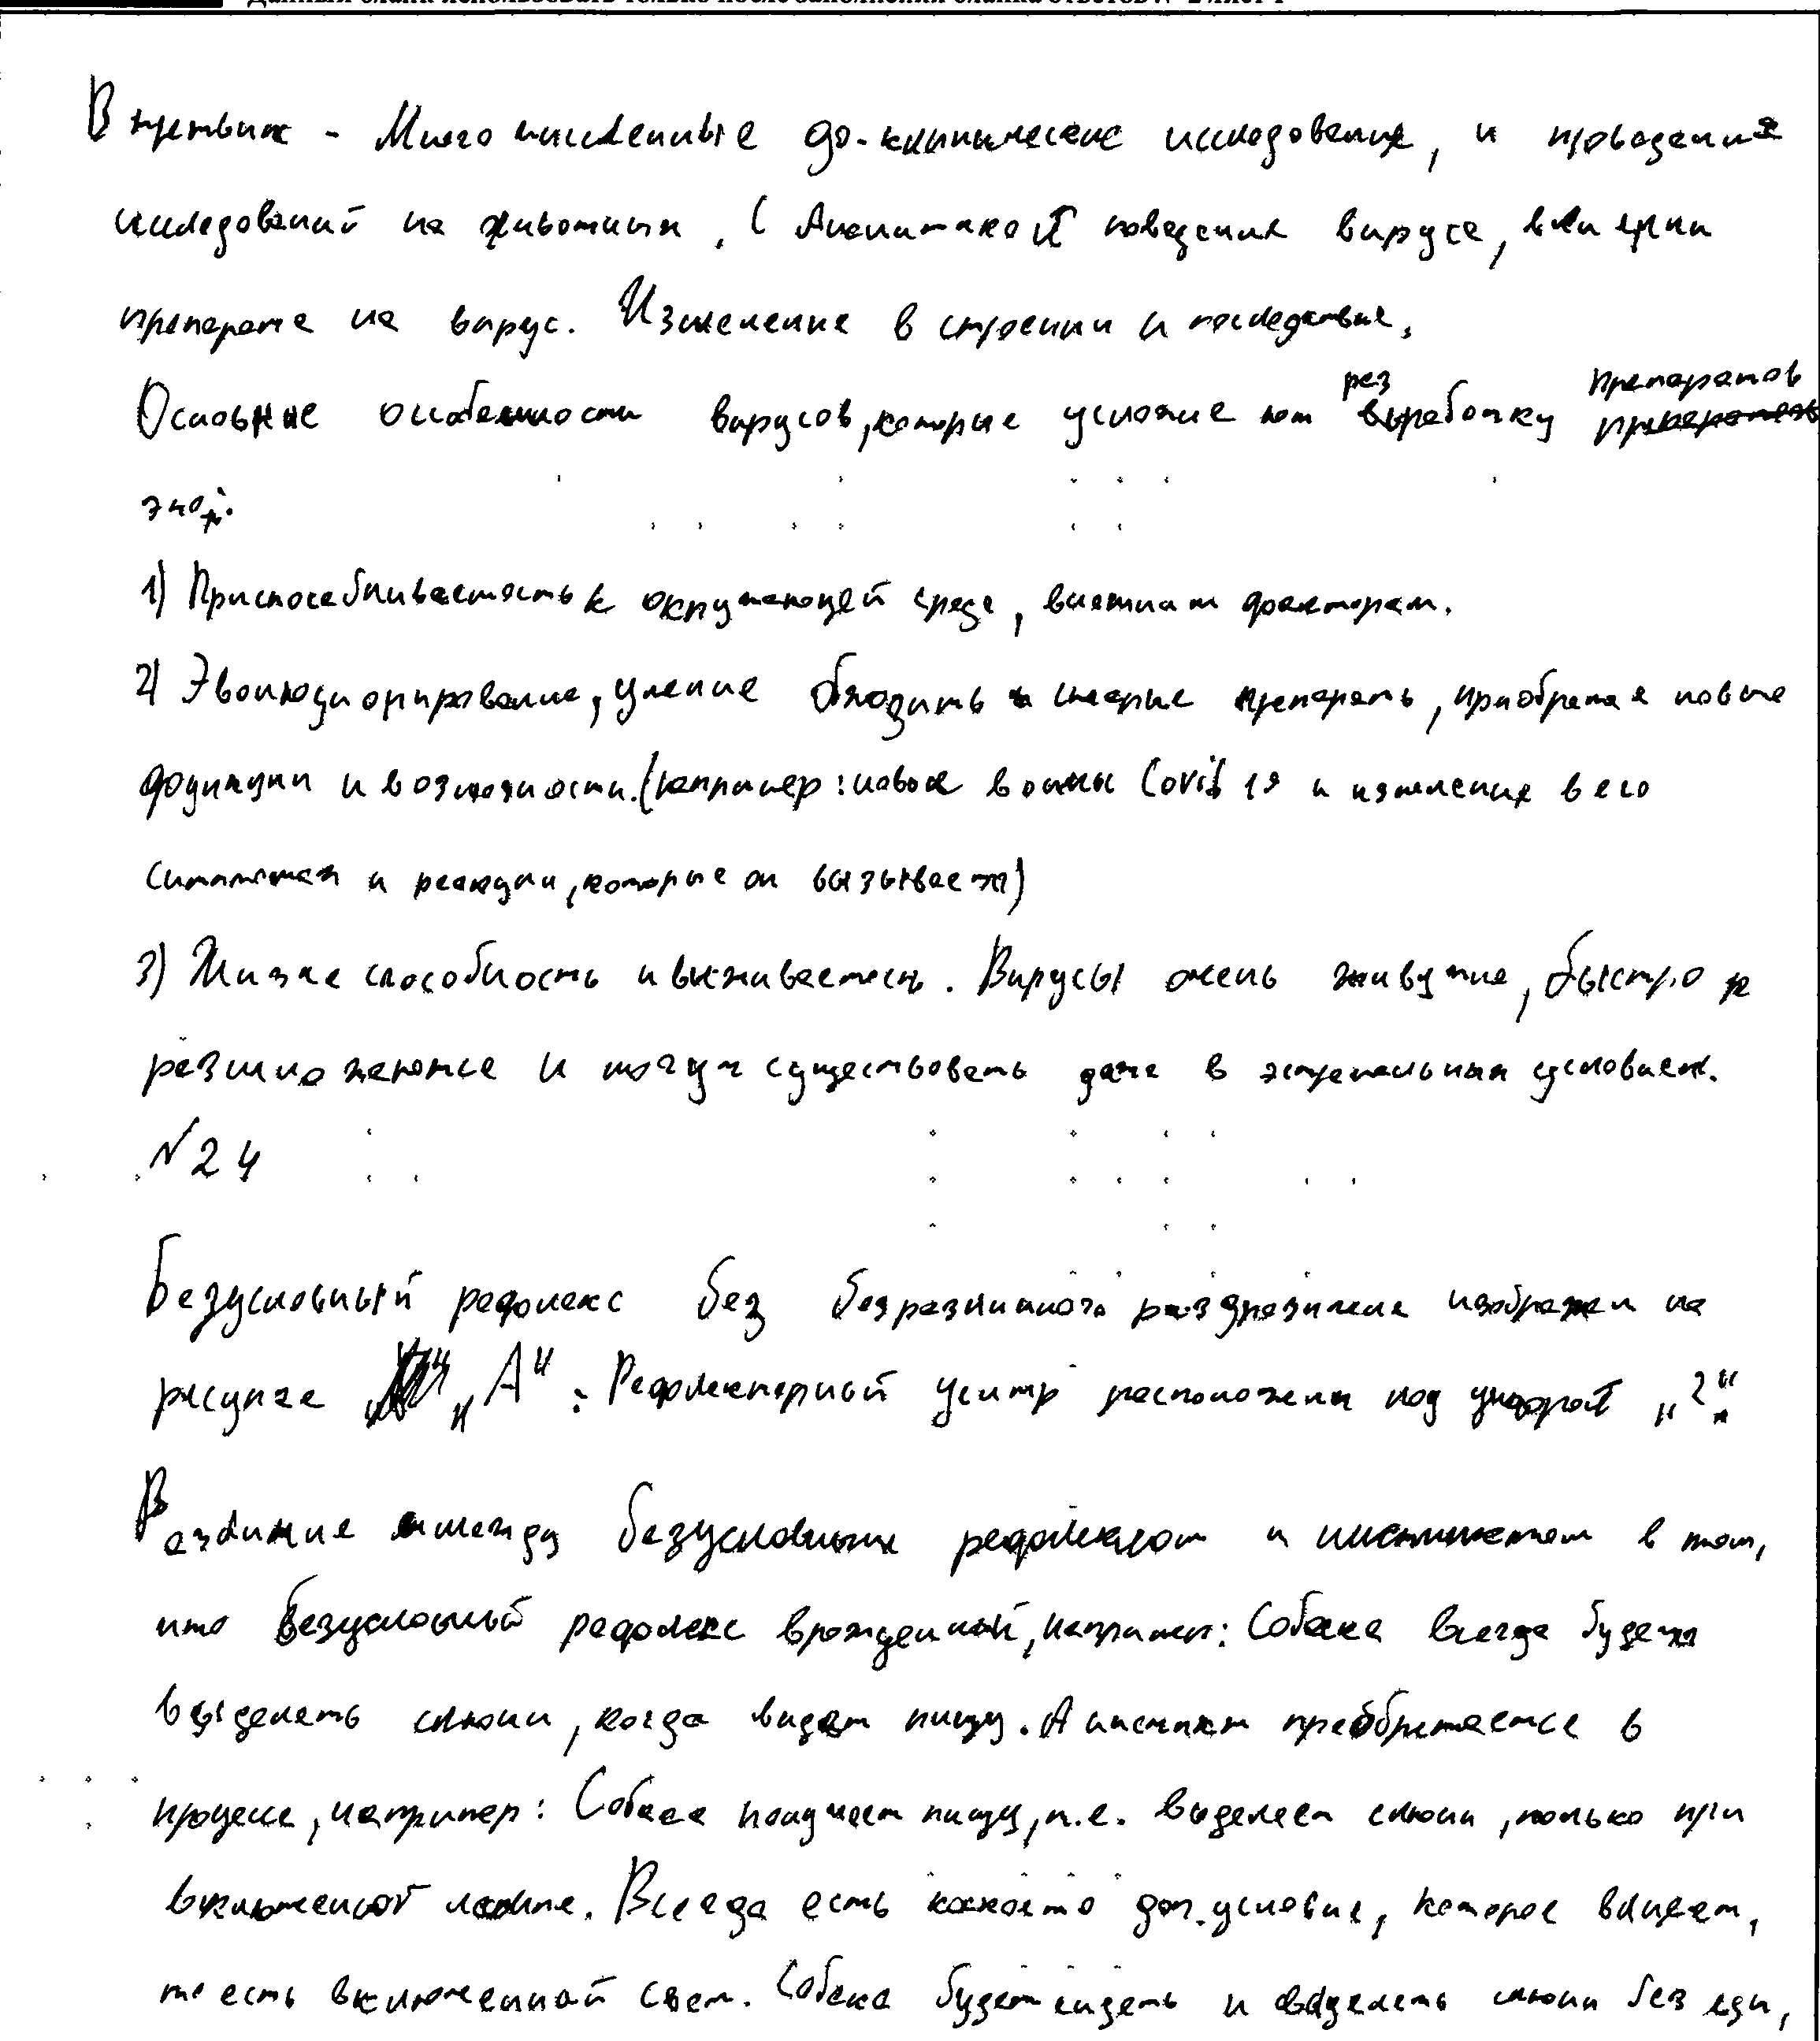 Данный бланк использовать только после заполнения бланка ответов № 2 лист 1
В третьих - Многочисленные до-клинические исследования, и проведения
исследований на животных. ( поведения вируса, влияния
препарата на вирус. Изменение в строении и последствия.
Основные особенности вирусов, которые усложняют разработку препаратов
это:
1) Приспосабливаемость к окружающей среде, внешним факторам.
2) Эволюционирование, умение обходить старые препараты, приобретая новые
функции и возможности. (например: новые волны Covid 19 и изменения в его
симптомах и реакции, которые он вызывает)
3) Жизнеспособность и выживаемость. Вирусы очень живучие, быстро
размножаются и могут существовать даже в экстремальных условиях.
№24
Безусловный рефлекс без безразличного раздражителя изображен на
рисунке „А“. Рефлекторный центр расположен под цифрой „2“.
Различие между безусловным рефлексом и инстинктом в том,
что безусловный рефлекс врожденный, например: Собака всегда будет
выделять слюни, когда видит пищу. А инстинкт преобретается в
процессе, например: Собака получает пищу, т.е. выделяет слюни, только при
включенной лампе. Всегда есть какоето доп. условие, которое влияет,
то есть включенный свет. Собака будет сидеть и выделять слюни без еды,